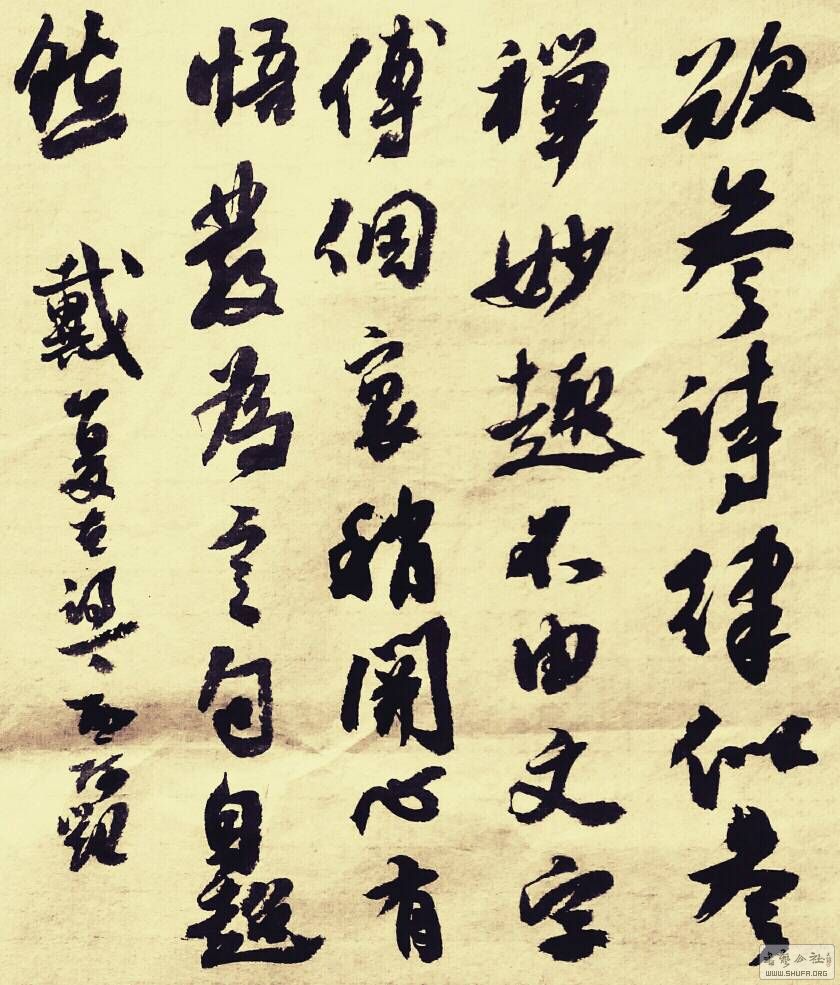 欲參詩律似參
禪妙趣不由文字
傳個裏稍関心有
悟發為言句自超
然 戴复古詩一
書藝公社
WWW.SHUFA.ORG